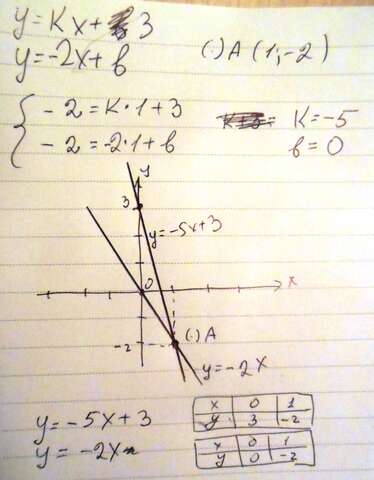 y = Kx + 3
y = -2x + b
(·) A (1; -2)
- 2 = K · 1 + 3
- 2 = -2 · 1 + b
K = -5
b = 0
y
3
y = -5x + 3
0
x
(·) A
-2
y = -2x
y = -5x + 3
y = -2x
x 0 1
y 3 -2
x 0 1
y 0 -2